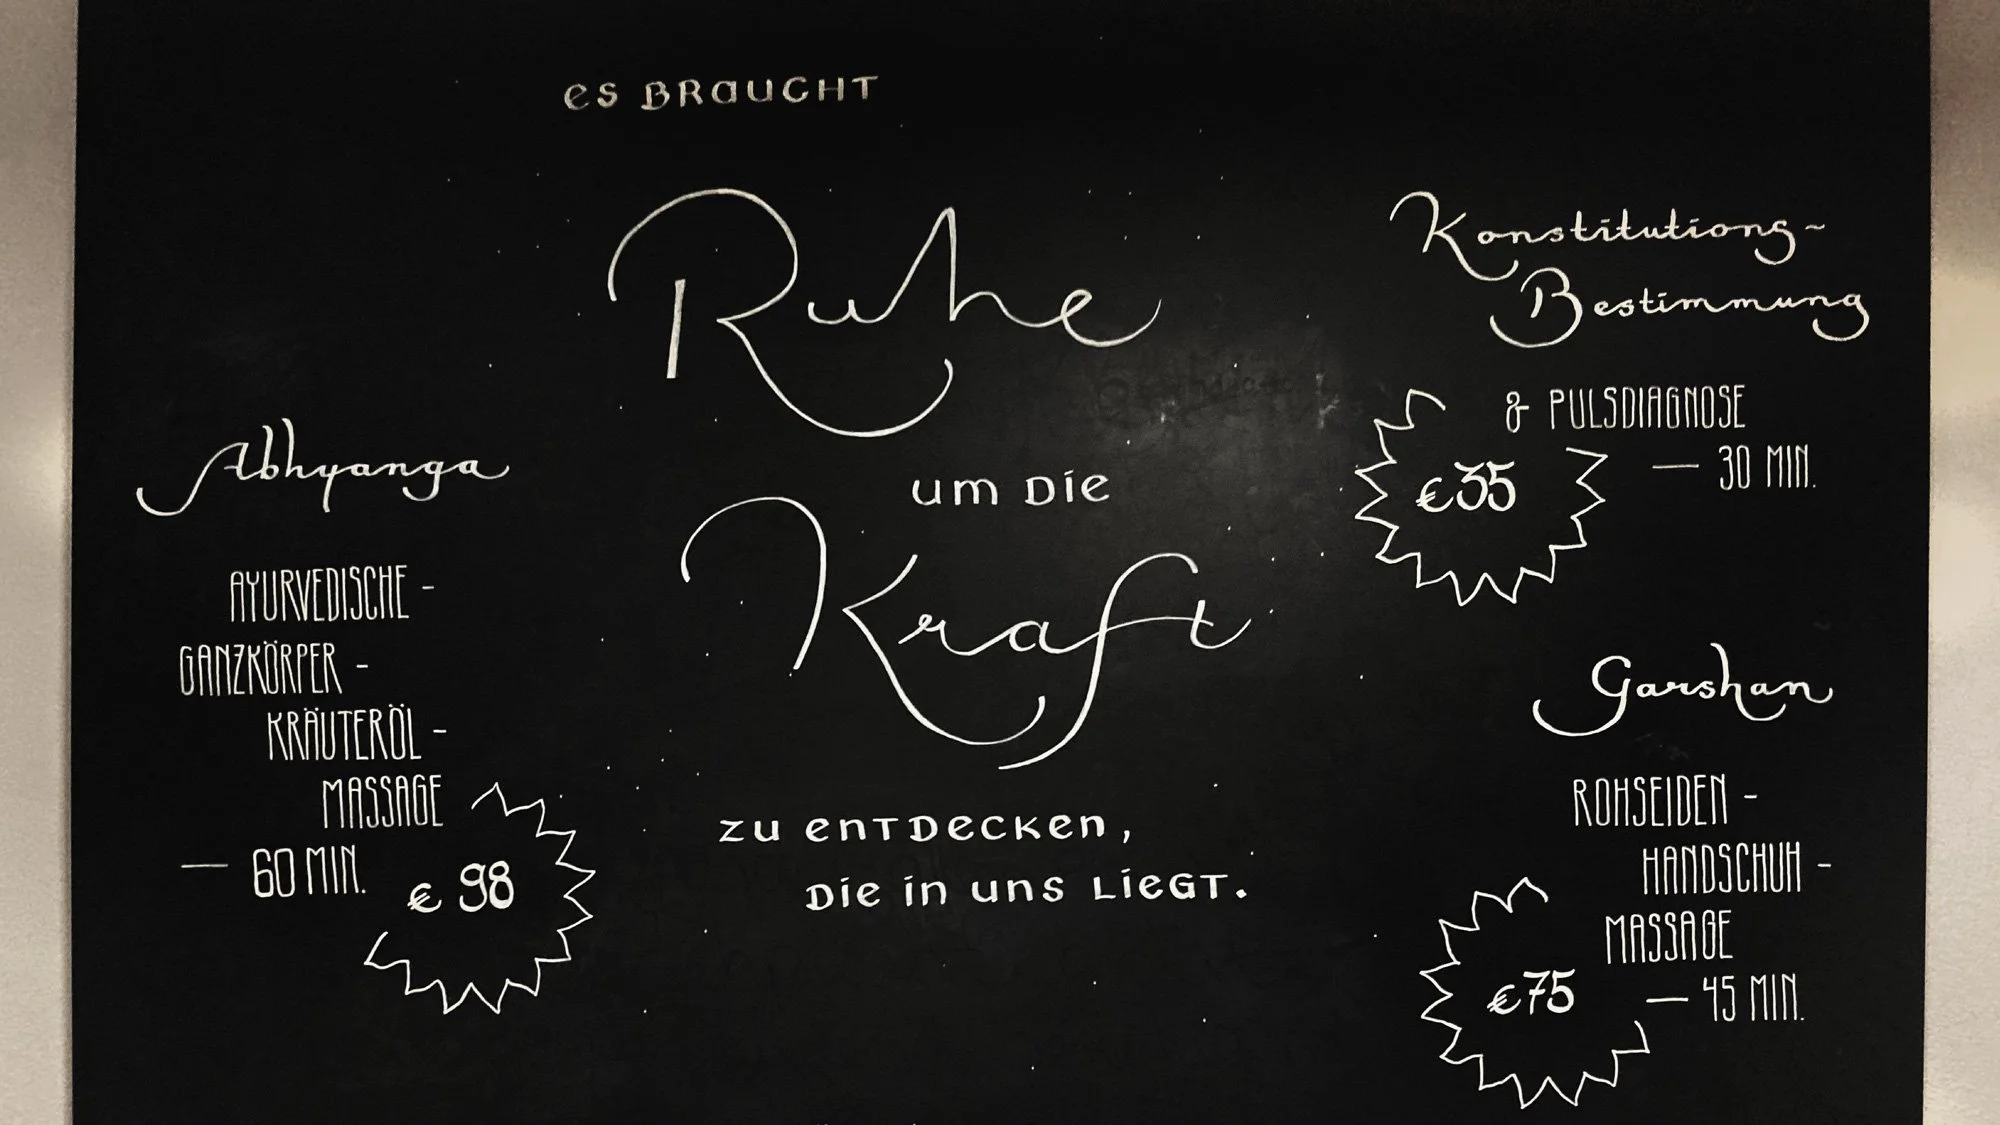 es BRaUCHT
Ruhe
um Die
Kraft
zu enTDecken,
Die in uns LieGT.
Abhyanga
AYURVEDISCHE -
GANZKÖRPER -
KRÄUTERÖL -
MASSAGE
— 60 MIN.
€ 98
Konstitutions~
Bestimmung
& PULSDIAGNOSE
— 30 MIN.
€35
Garshan
ROHSEIDEN -
HANDSCHUH -
MASSAGE
— 45 MIN.
€75